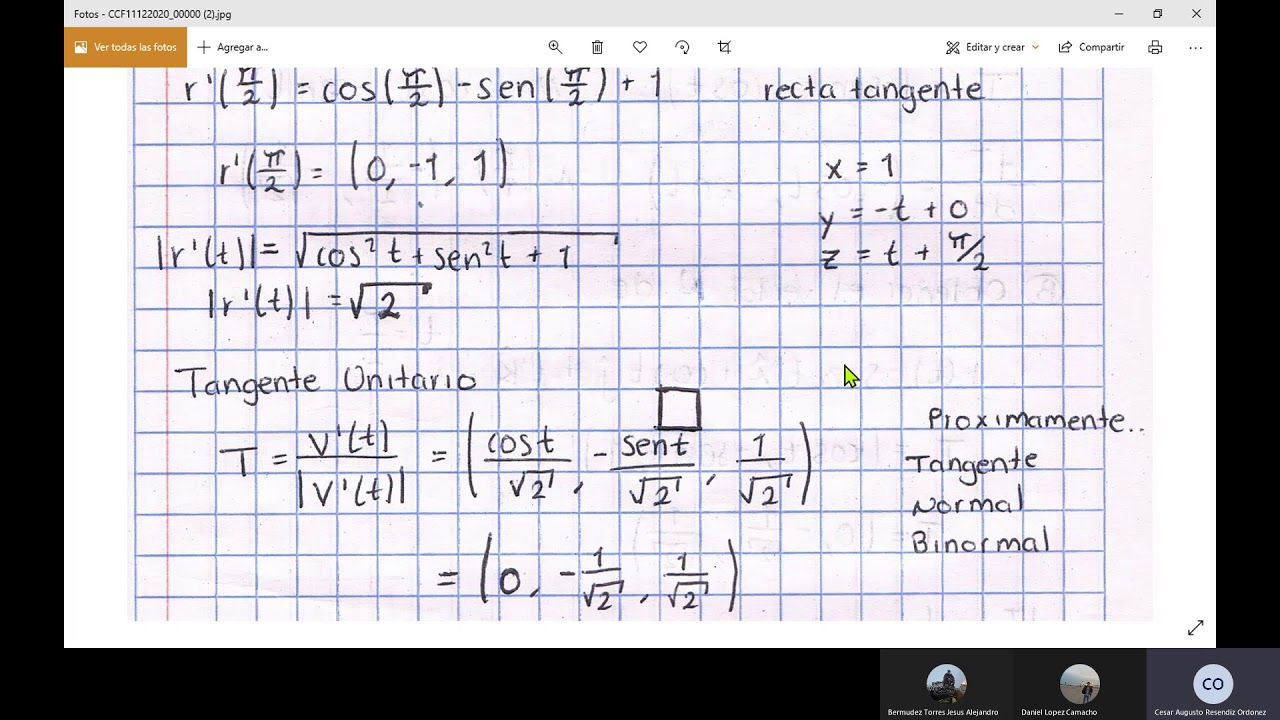 Fotos - CCF11122020_00000 (2).jpg
Ver todas las fotos
Agregar a...
Editar y crear
Compartir
r'(π/2) = cos(π/2) - sen(π/2) + 1
r'(π/2) = (0, -1, 1)
|r'(t)| = √cos²t + sen²t + 1
|r'(t)| = √2
recta tangente
x = 1
y = -t + 0
z = t + π/2
Tangente Unitario
T = v'(t)/|v'(t)| = (cost/√2, -sent/√2, 1/√2)
= (0, -1/√2, 1/√2)
Proximamente..
Tangente
Normal
Binormal
CO
Bermudez Torres Jesus Alejandro
Daniel Lopez Camacho
Cesar Augusto Resendiz Ordonez